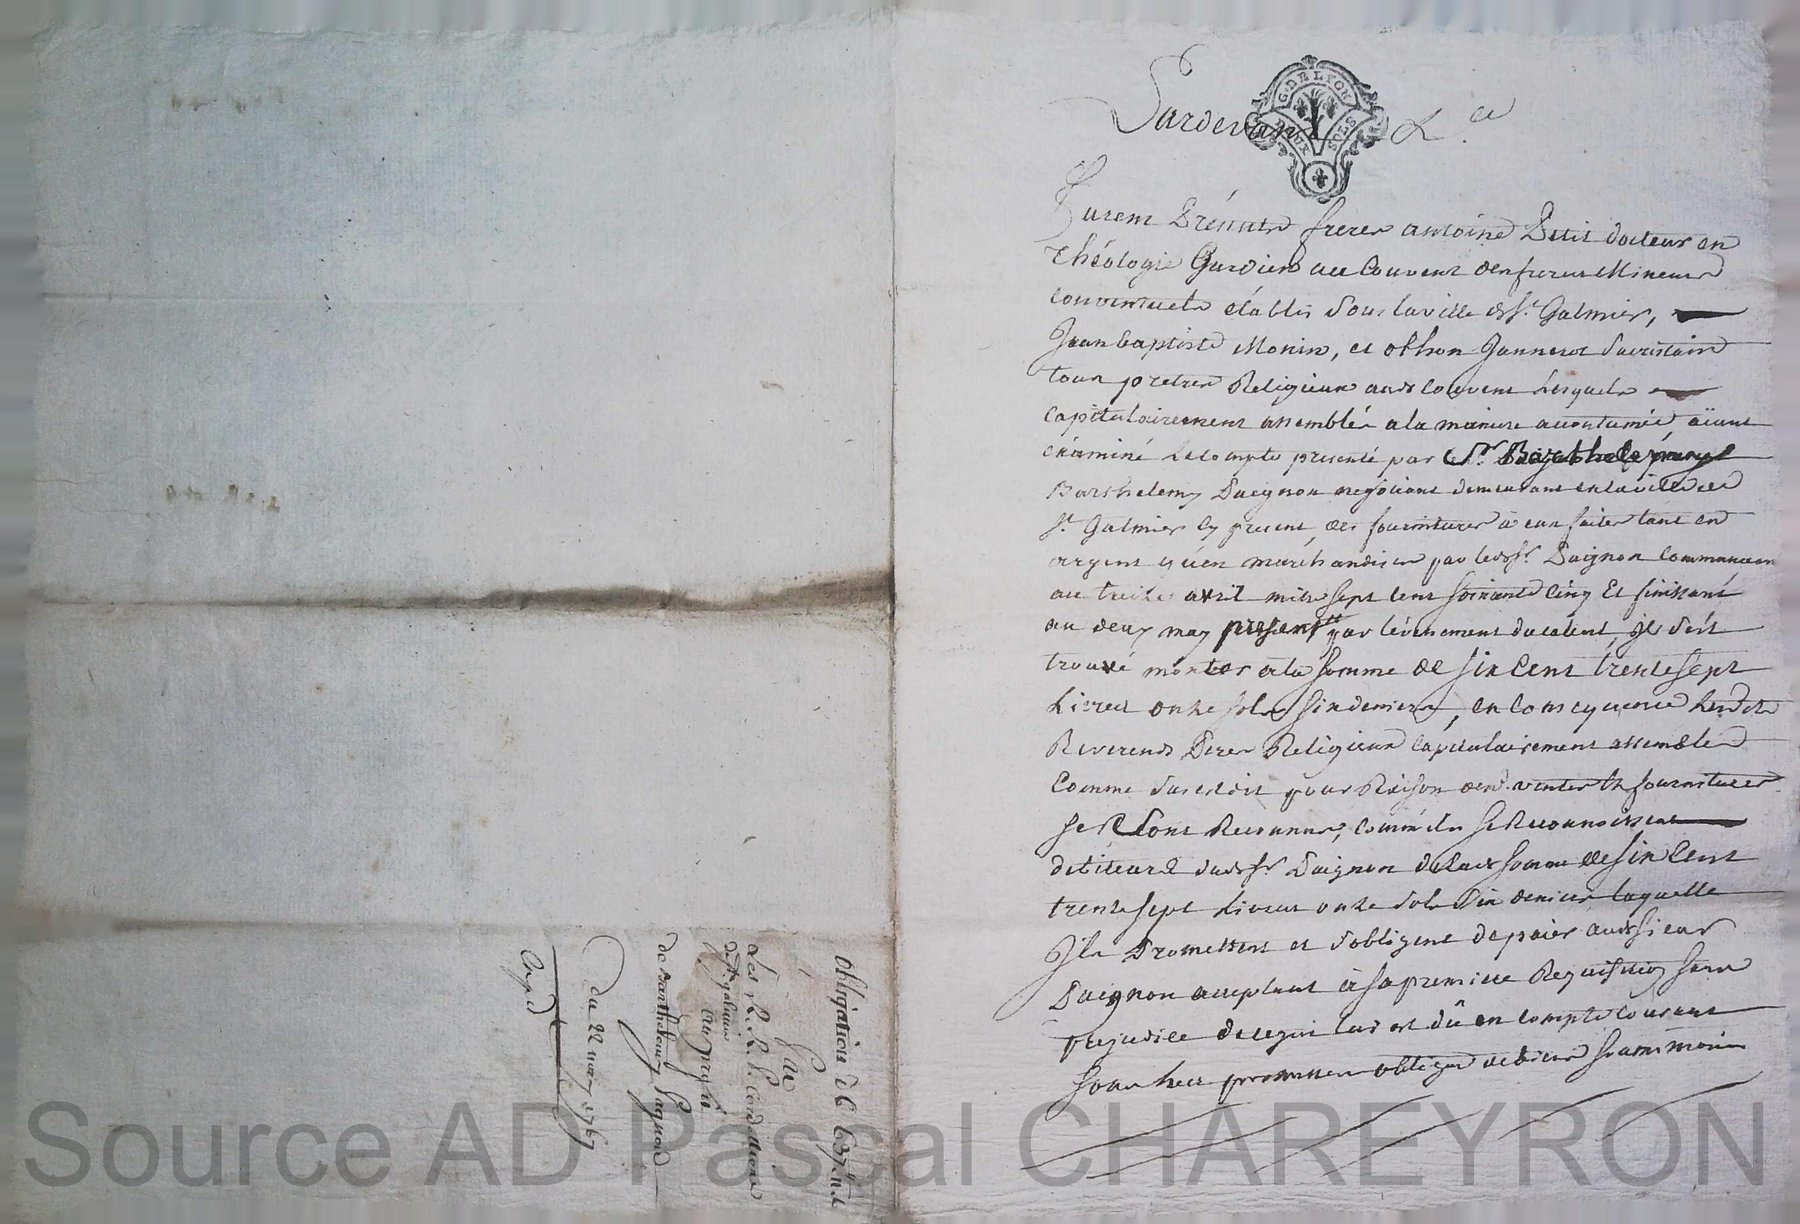 Pardevant &c.
G. DE LYON
DEUX SOLS
furent présents freres antoine Petit docteur en
théologie Gardien au Couvent des freres Mineurs
conventuels établis sous la ville de St. Galmier,
Jean baptiste Monin, et othon Jannerot Sacristain
tous pretres Religieux audt Couvent Lesquels
Capitulairement assemblés a la maniere accoutumée, aïant
éxaminé Le compte presenté par le Sr.
Barthelemy Paignon négotiant demeurant en la ville de
St. Galmier cy present, des fournitures à eux faites tant en
argent qu'en marchandises par ledt Sr. Paignon Commencan
au treize avril mille sept cent soixante cinq Et finissant
au deux may present par lévénement du calcul, il s'est
trouvé monter à la somme de six Cent trente sept
Livres onze sols six deniers, en consequence Lesdits
Reverends Peres Religieux Capitulairement assemblés
Comme dessus dit pour Raison desd. ventes Et fournitures
se sont Reconnus, comm'ils se Reconnoissent
debiteurs dudt Sr. Paignon de ladt somme de six Cent
trente sept Livres onze sols six deniers laquelle
Ils Promettent et s'obligent de païer audt sieur
Paignon acceptant à sa premiere Requisition sans
prejudice de ce qui lui est dû en compte courant
par
obligation de 637.tt 11.s 6
Par
Les R.R. P. Cordelliers
de St. galmier
au profit
de barthelemy Pagnon
du 22 may 1767
Exp.d
Source AD Pascal CHAREYRON